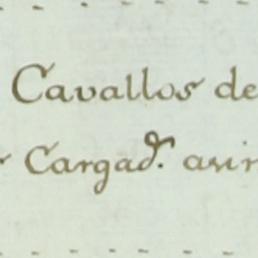 Cavallos de
Cargadr. asi